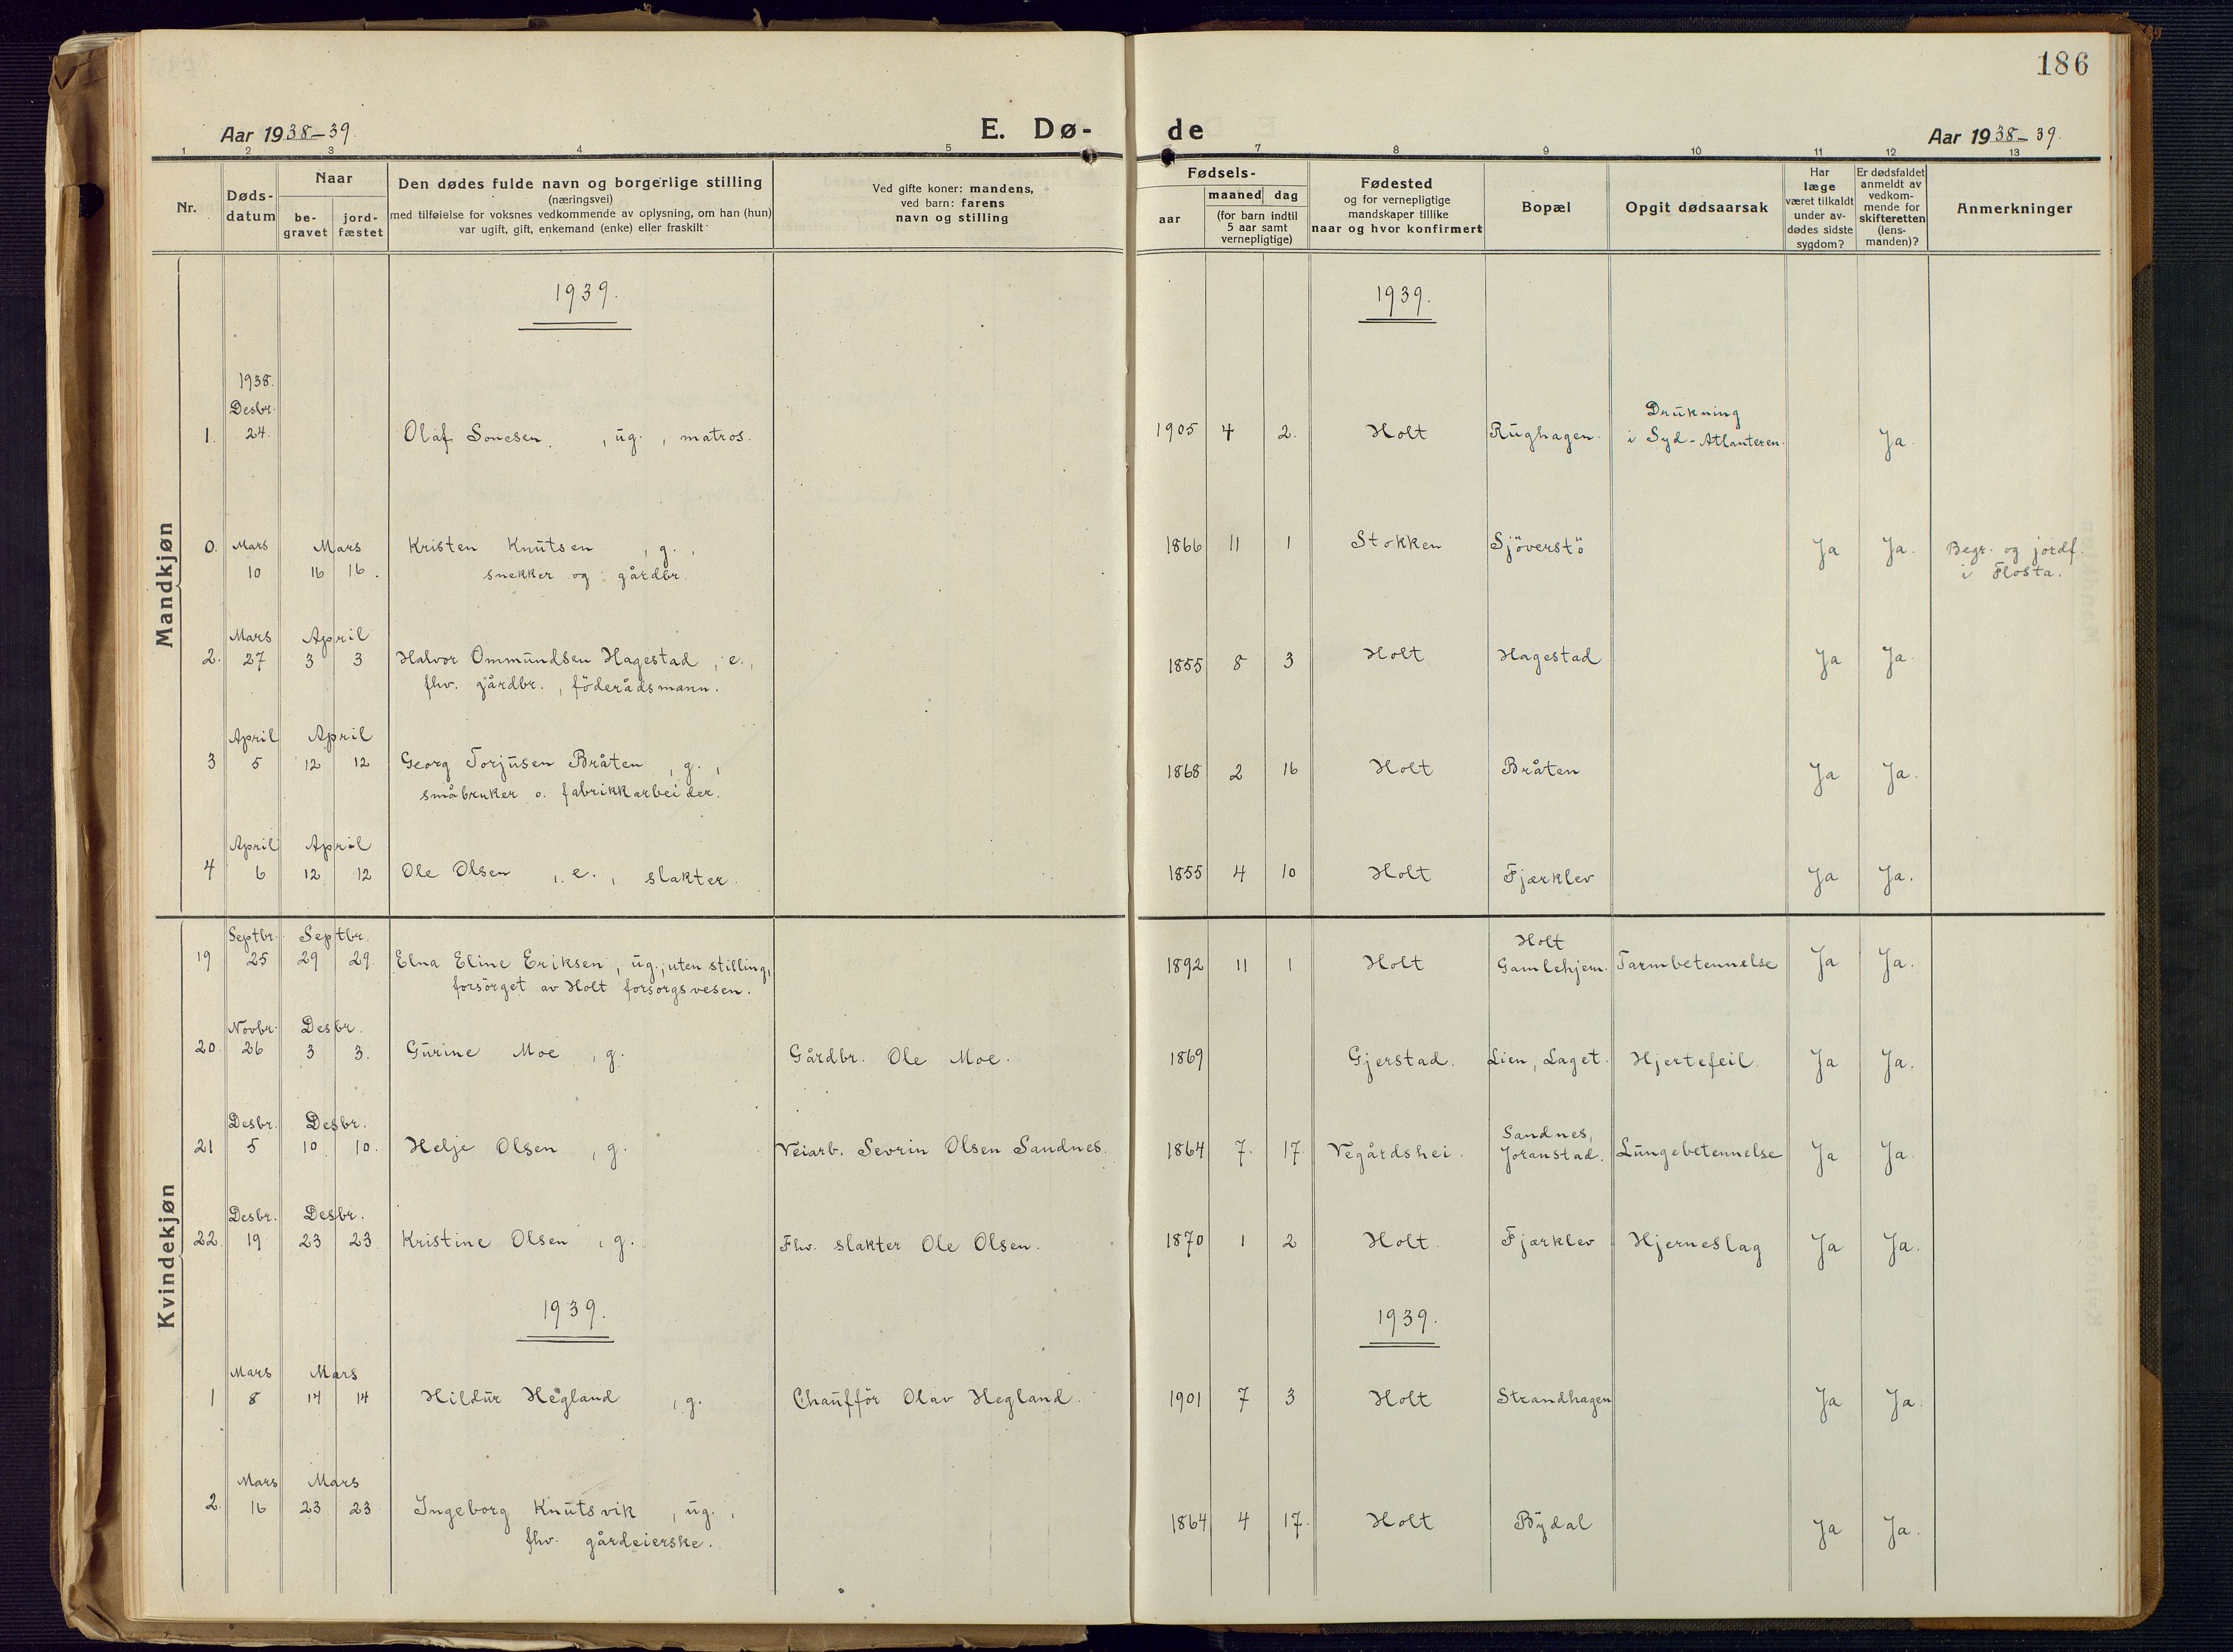 186
Aar 1938-39.
E. Dø-
de
Aar 1938-39.
1 2 3 4 5 7 8 9 10 11 12 13
Nr.
Døds-
datum
Naar
be-
gravet
jord-
fæstet
Den dødes fulde navn og borgerlige stilling
(næringsvei)
med tilføielse for voksnes vedkommende av oplysning, om han (hun)
var ugift, gift, enkemand (enke) eller fraskilt
Ved gifte koner: mandens,
ved barn: farens
navn og stilling
Fødsels-
aar
maaned
dag
(for barn indtil
5 aar samt
vernepligtige)
Fødested
og for vernepligtige
mandskaper tillike
naar og hvor konfirmert
Bopæl
Opgit dødsaarsak
Har
læge
været tilkaldt
under av-
dødes sidste
sygdom?
Er dødsfaldet
anmeldt av
vedkom-
mende for
skifteretten
(lens-
manden)?
Anmerkninger
Mandkjøn
1939.
1939.
1938.
Desbr.
Drukning
1. 24. Olaf Sonesen, ug., matros. 1905 4 2. Holt Rughagen. i Syd-Atlanteren. Ja.
0. Mars Mars Kristen Knutsen, g., 1866 11 1 Stokken Sjöverstö Ja Ja. Begr. og jordf.
10 16 16. snekker og gårdbr. i Flosta.
Mars April
2. 27 3 3 Halvor Ommundsen Hagestad, e., 1855 8 3 Holt Hagestad Ja Ja.
fhv. gårdbr., föderådsmann.
April April
3 5 12 12 Georg Torjusen Bråten, g., 1868 2 16 Holt Bråten Ja Ja.
småbruker o. fabrikkarbeider.
April April
4 6 12 12 Ole Olsen, e., slakter. 1855 4 10 Holt Fjærklev Ja Ja.
Kvindekjøn
Septbr. Septbr. Holt
19 25 29 29. Elna Eline Eriksen, ug., uten stilling, 1892 11 1 Holt Gamlehjem. Tarmbetennelse Ja Ja.
forsörget av Holt forsorgsvesen.
Novbr. Desbr.
20. 26 3 3. Gurine Moe, g. Gårdbr. Ole Moe. 1869 Gjerstad. Lien, Laget. Hjertefeil. Ja Ja.
Desbr. Desbr. Sandnes,
21 5 10. 10. Helje Olsen, g. Veiarb. Sevrin Olsen Sandnes. 1864 7. 17. Vegårdshei. Joranstad. Lungebetennelse Ja Ja.
Desbr. Desbr.
22. 19 23 23 Kristine Olsen, g. Fhv. slakter Ole Olsen. 1870 1 2 Holt. Fjærklev Hjerneslag Ja Ja.
1939.
1939.
Mars Mars
1 8 14 14 Hildur Hegland, g. Chauffør Olav Hegland. 1901 7 3 Holt Strandhagen Ja Ja.
Mars Mars
2. 16 23 23 Ingeborg Knutsvik, ug., 1864 4 17. Holt Bydal Ja Ja.
fhv. gårdeierske.